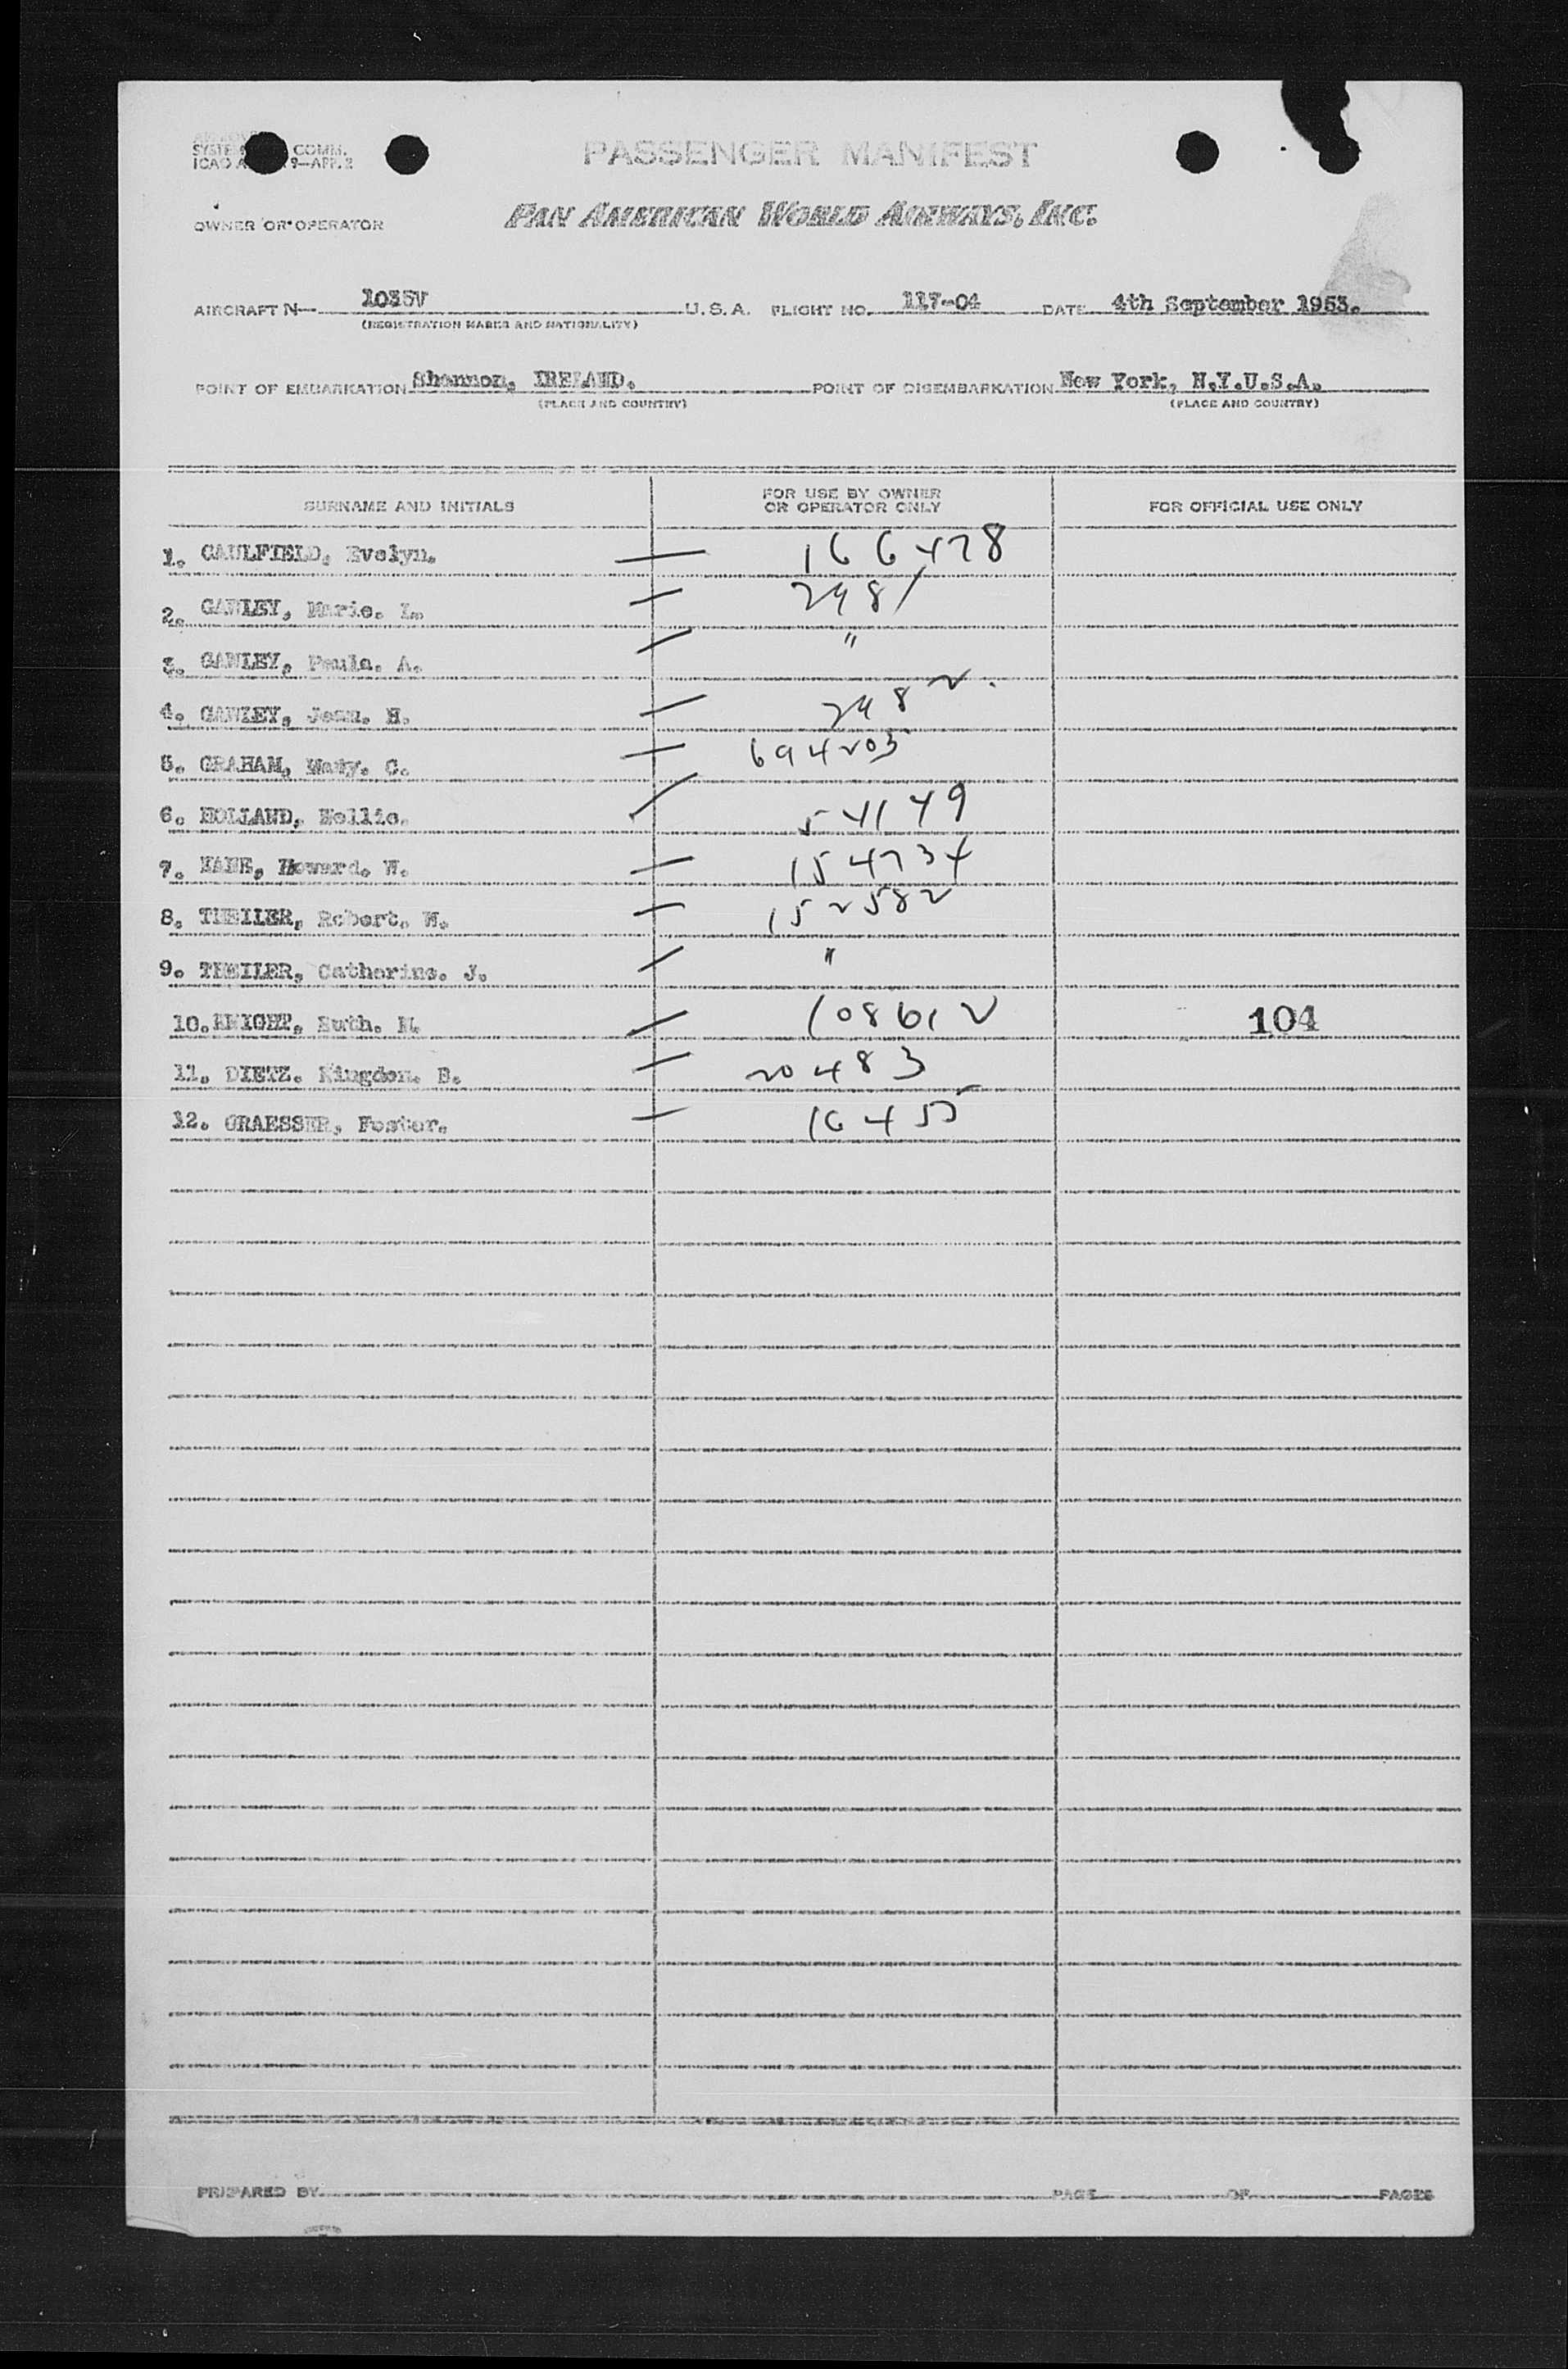 SYSTE COMM.
ICAO A 9—APP. 2
PASSENGER MANIFEST
OWNER OR OPERATOR
PAN AMERICAN WORLD AIRWAYS, INC.
AIRCRAFT N— 1035V U. S. A. FLIGHT NO. 117-04 DATE 4th September 1953.
(REGISTRATION MARKS AND NATIONALITY)
POINT OF EMBARKATION Shannon, IRELAND. POINT OF DISEMBARKATION New York, N.Y.U.S.A.
(PLACE AND COUNTRY) (PLACE AND COUNTRY)
SURNAME AND INITIALS FOR USE BY OWNER OR OPERATOR ONLY FOR OFFICIAL USE ONLY
1. CAULFIELD, Evelyn. — 166478
2. GAWLEY, Marie. I. — 2981
3. GAWLEY, Paula. A. — "
4. GAWLEY, Jean. H. — 2982.
5. GRAHAM, Mary. C. — 694203
6. HOLLAND, Nellie. — 54149
7. KANE, Howard. W. — 154734
8. THEILER, Robert. W. — 152582
9. THEILER, Catherine. J. — "
10. KNIGHT, Ruth. N. — 108612 104
11. DIETZ. Kingdon. B. — 20483
12. GRAESSER, Foster. — 16455
PREPARED BY PAGE OF PAGES